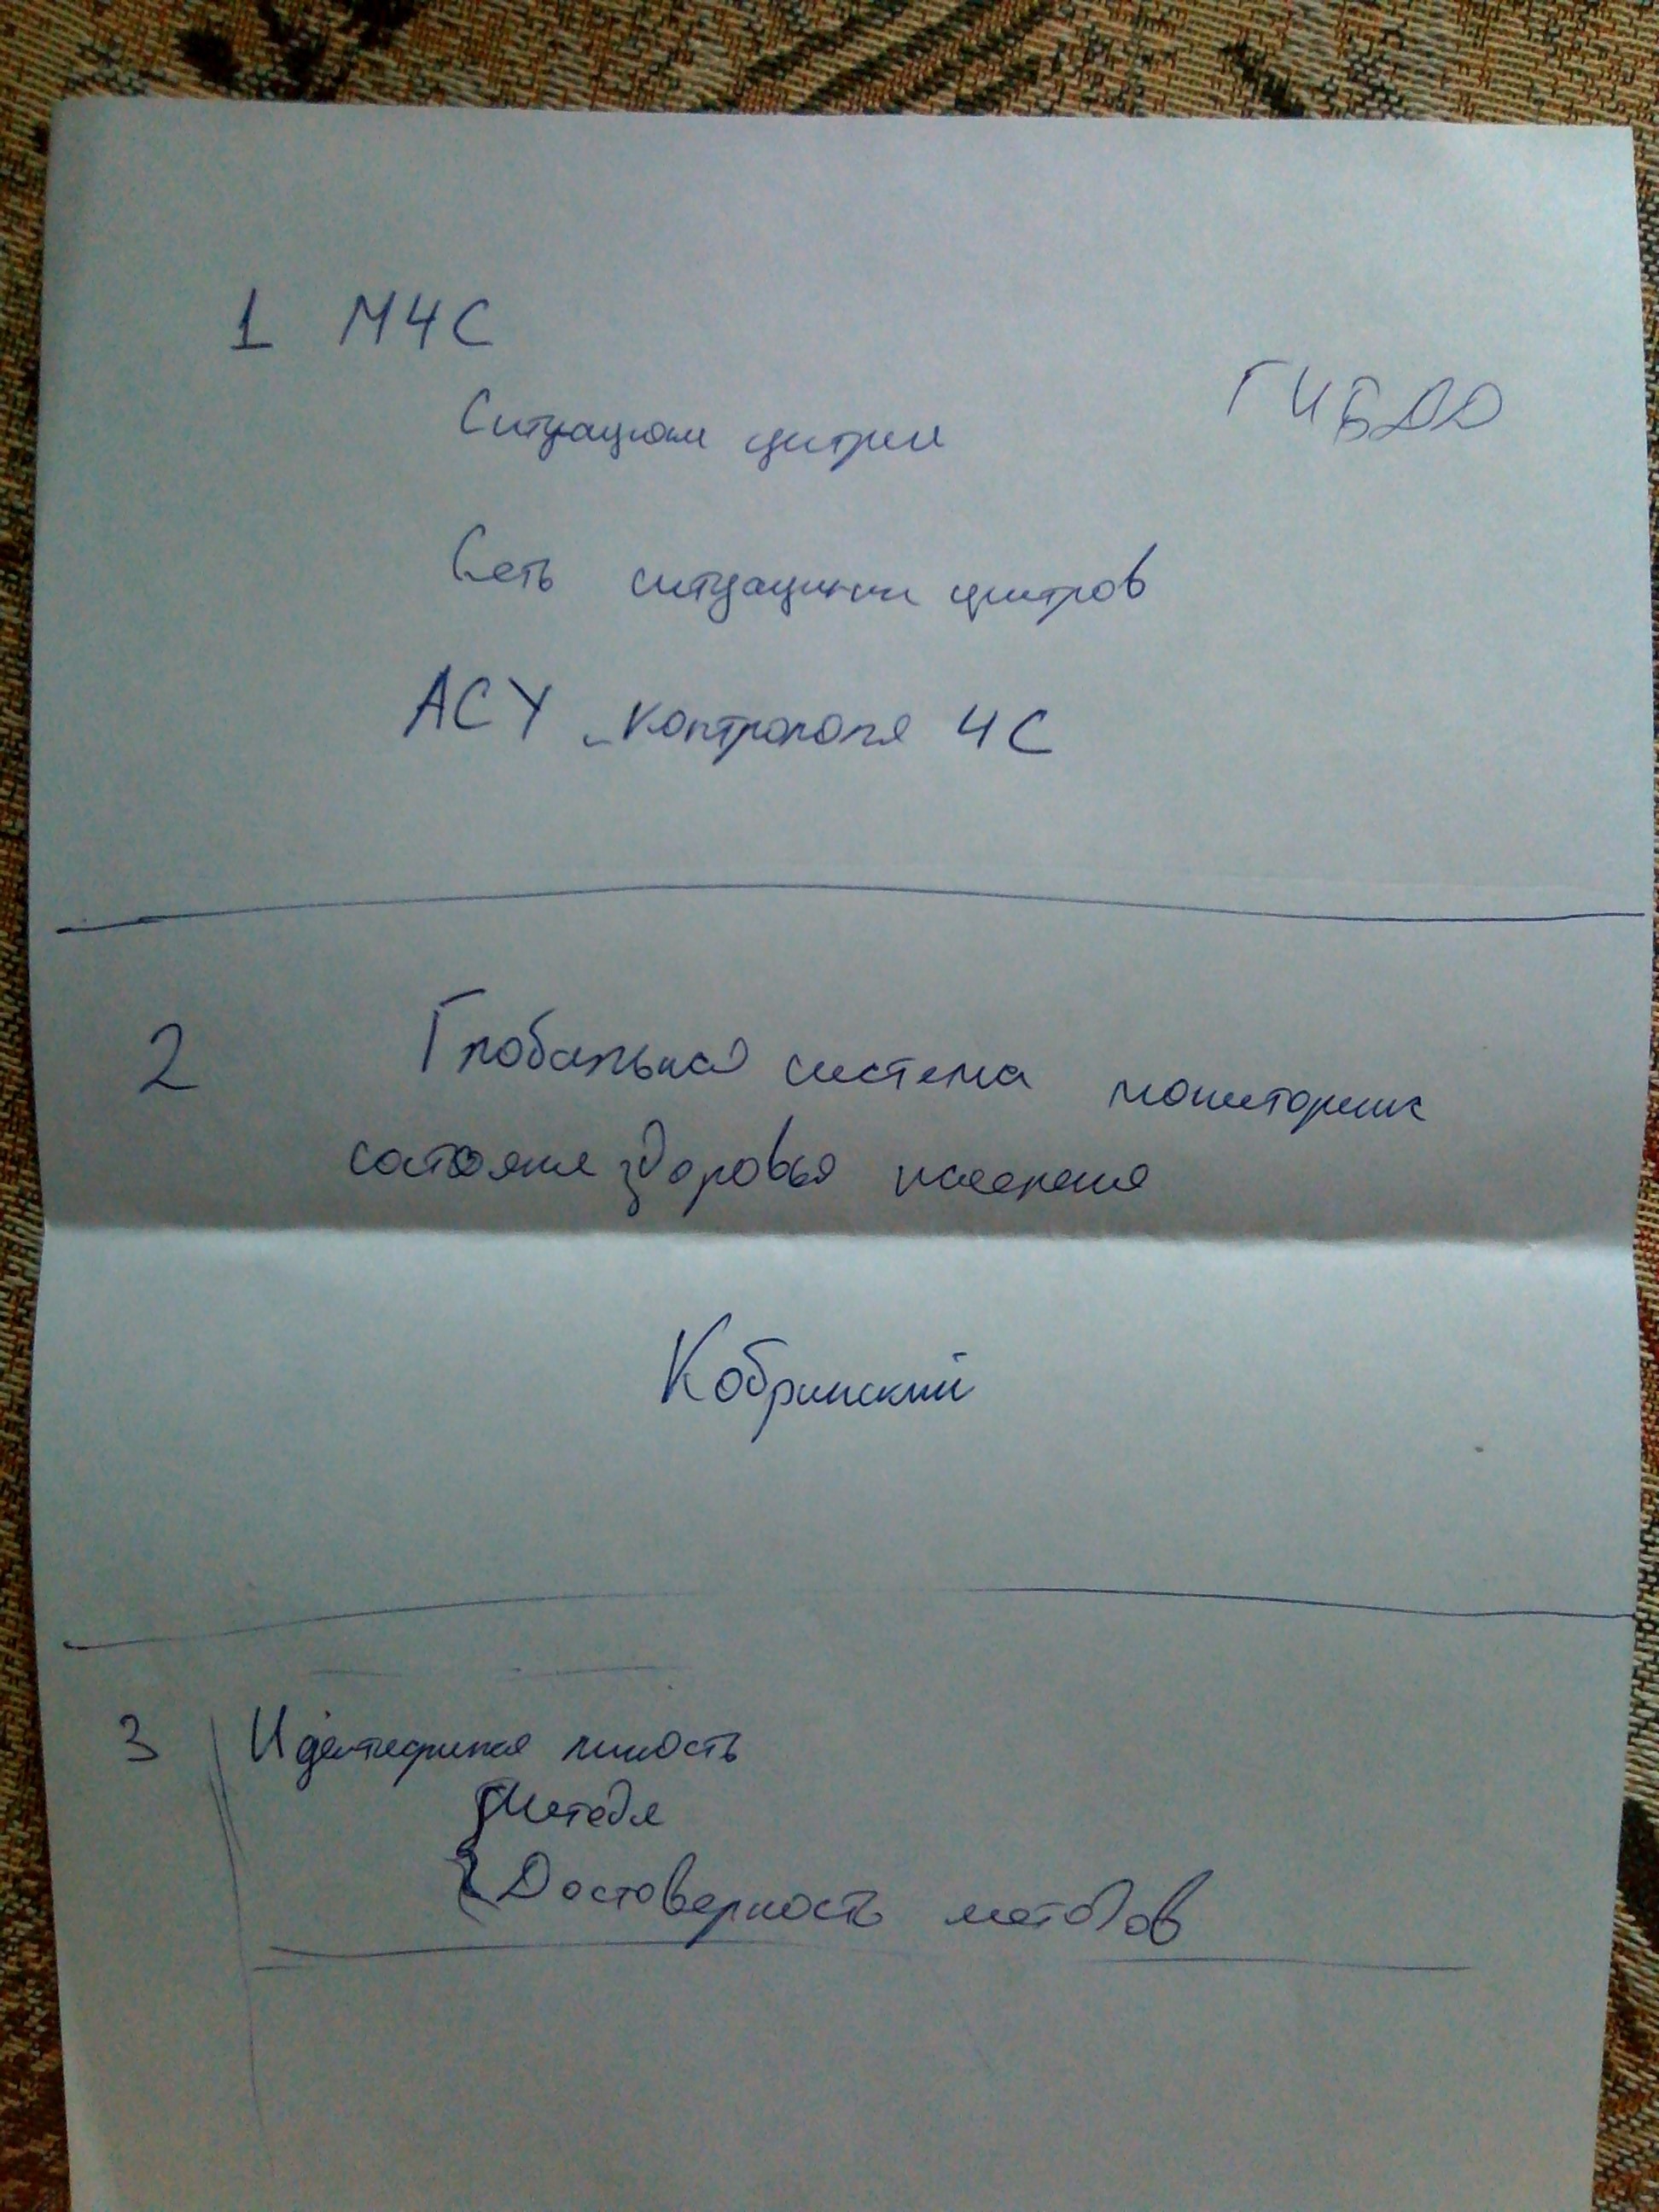 1 МЧС
ГИБДД
Ситуацион центры
Сеть ситуационн центров
АСУ контроля ЧС
2 Глобальная система мониторинг
состояния здоровья населения
Кобринский
3 Идентификация личность
Методы
Достоверность методов